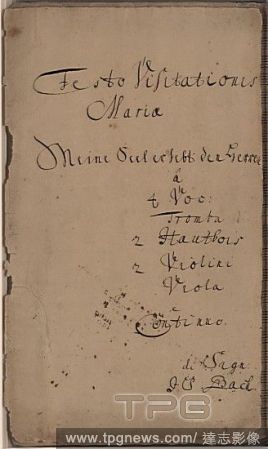 Festo Visitationis
Mariæ
Meine Seel erhebt den Herren
à
4 Voc:
Tromba
2 Hautbois
2 Violini
Viola
e
Continuo.
di Sign:
J S Bach
TPG
www.tpgnews.com / 達志影像